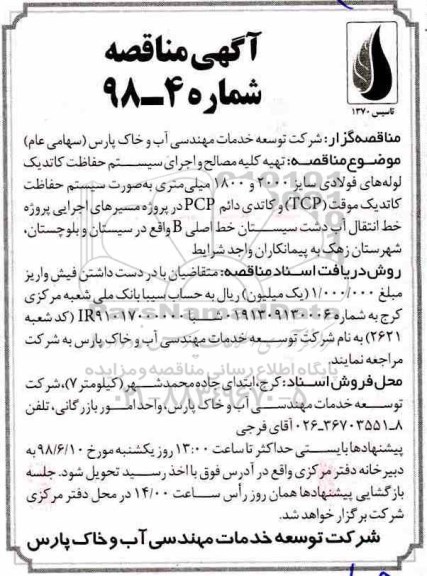 آگهی مناقصه
شماره ۴ـ۹۸
تاسیس ۱۳۷۰
مناقصه‌گزار: شرکت توسعه خدمات مهندسی آب و خاک پارس (سهامی عام)
موضوع مناقصه: تهیه کلیه مصالح و اجرای سیستم حفاظت کاتدیک
لوله‌های فولادی سایز ۲۰۰۰ و ۱۸۰۰ میلی‌متری به‌صورت سیستم حفاظت
کاتدیک موقت (TCP) و کاتدی دائم PCP در پروژه مسیرهای اجرایی پروژه
خط انتقال آب دشت سیستان خط اصلی B واقع در سیستان و بلوچستان،
شهرستان زهک به پیمانکاران واجد شرایط
روش دریافت اسناد مناقصه: متقاضیان با در دست داشتن فیش واریز
مبلغ ۱/۰۰۰/۰۰۰ (یک میلیون) ریال به حساب سیبا بانک ملی شعبه مرکزی
کرج به شماره (کد شعبه
۲۶۲۱) به نام شرکت توسعه خدمات مهندسی آب و خاک پارس به شرکت
مراجعه نمایند.
محل فروش اسناد: کرج، ابتدای جاده محمدشهر (کیلومتر ۷)، شرکت
توسعه خدمات مهندسی آب و خاک پارس، واحد امور بازرگانی، تلفن
۸ـ۳۶۷۰۳۵۵۱ـ۰۲۶ آقای فرجی
پیشنهادها بایستی حداکثر تا ساعت ۱۳:۰۰ روز یکشنبه مورخ ۹۸/۶/۱۰ به
دبیرخانه دفتر مرکزی واقع در آدرس فوق با اخذ رسید تحویل شود. جلسه
بازگشایی پیشنهادها همان روز رأس ساعت ۱۴/۰۰ در محل دفتر مرکزی
شرکت برگزار خواهد شد.
شرکت توسعه خدمات مهندسی آب و خاک پارس